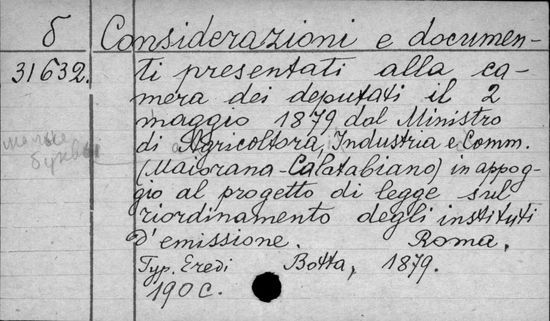 б Considerazioni e documen-
31632. ti presentati alla ca-
mera dei deputati il 2
maggio 1879 dal Ministro
малые di Agricoltora, Industria e Comm.
буквы (Maiorana-Calatabiano) in appog-
gio al progetto di legge sul
riordinamento degli instituti
d'emissione. Roma,
Typ. Eredi Botta, 1879.
190 c.